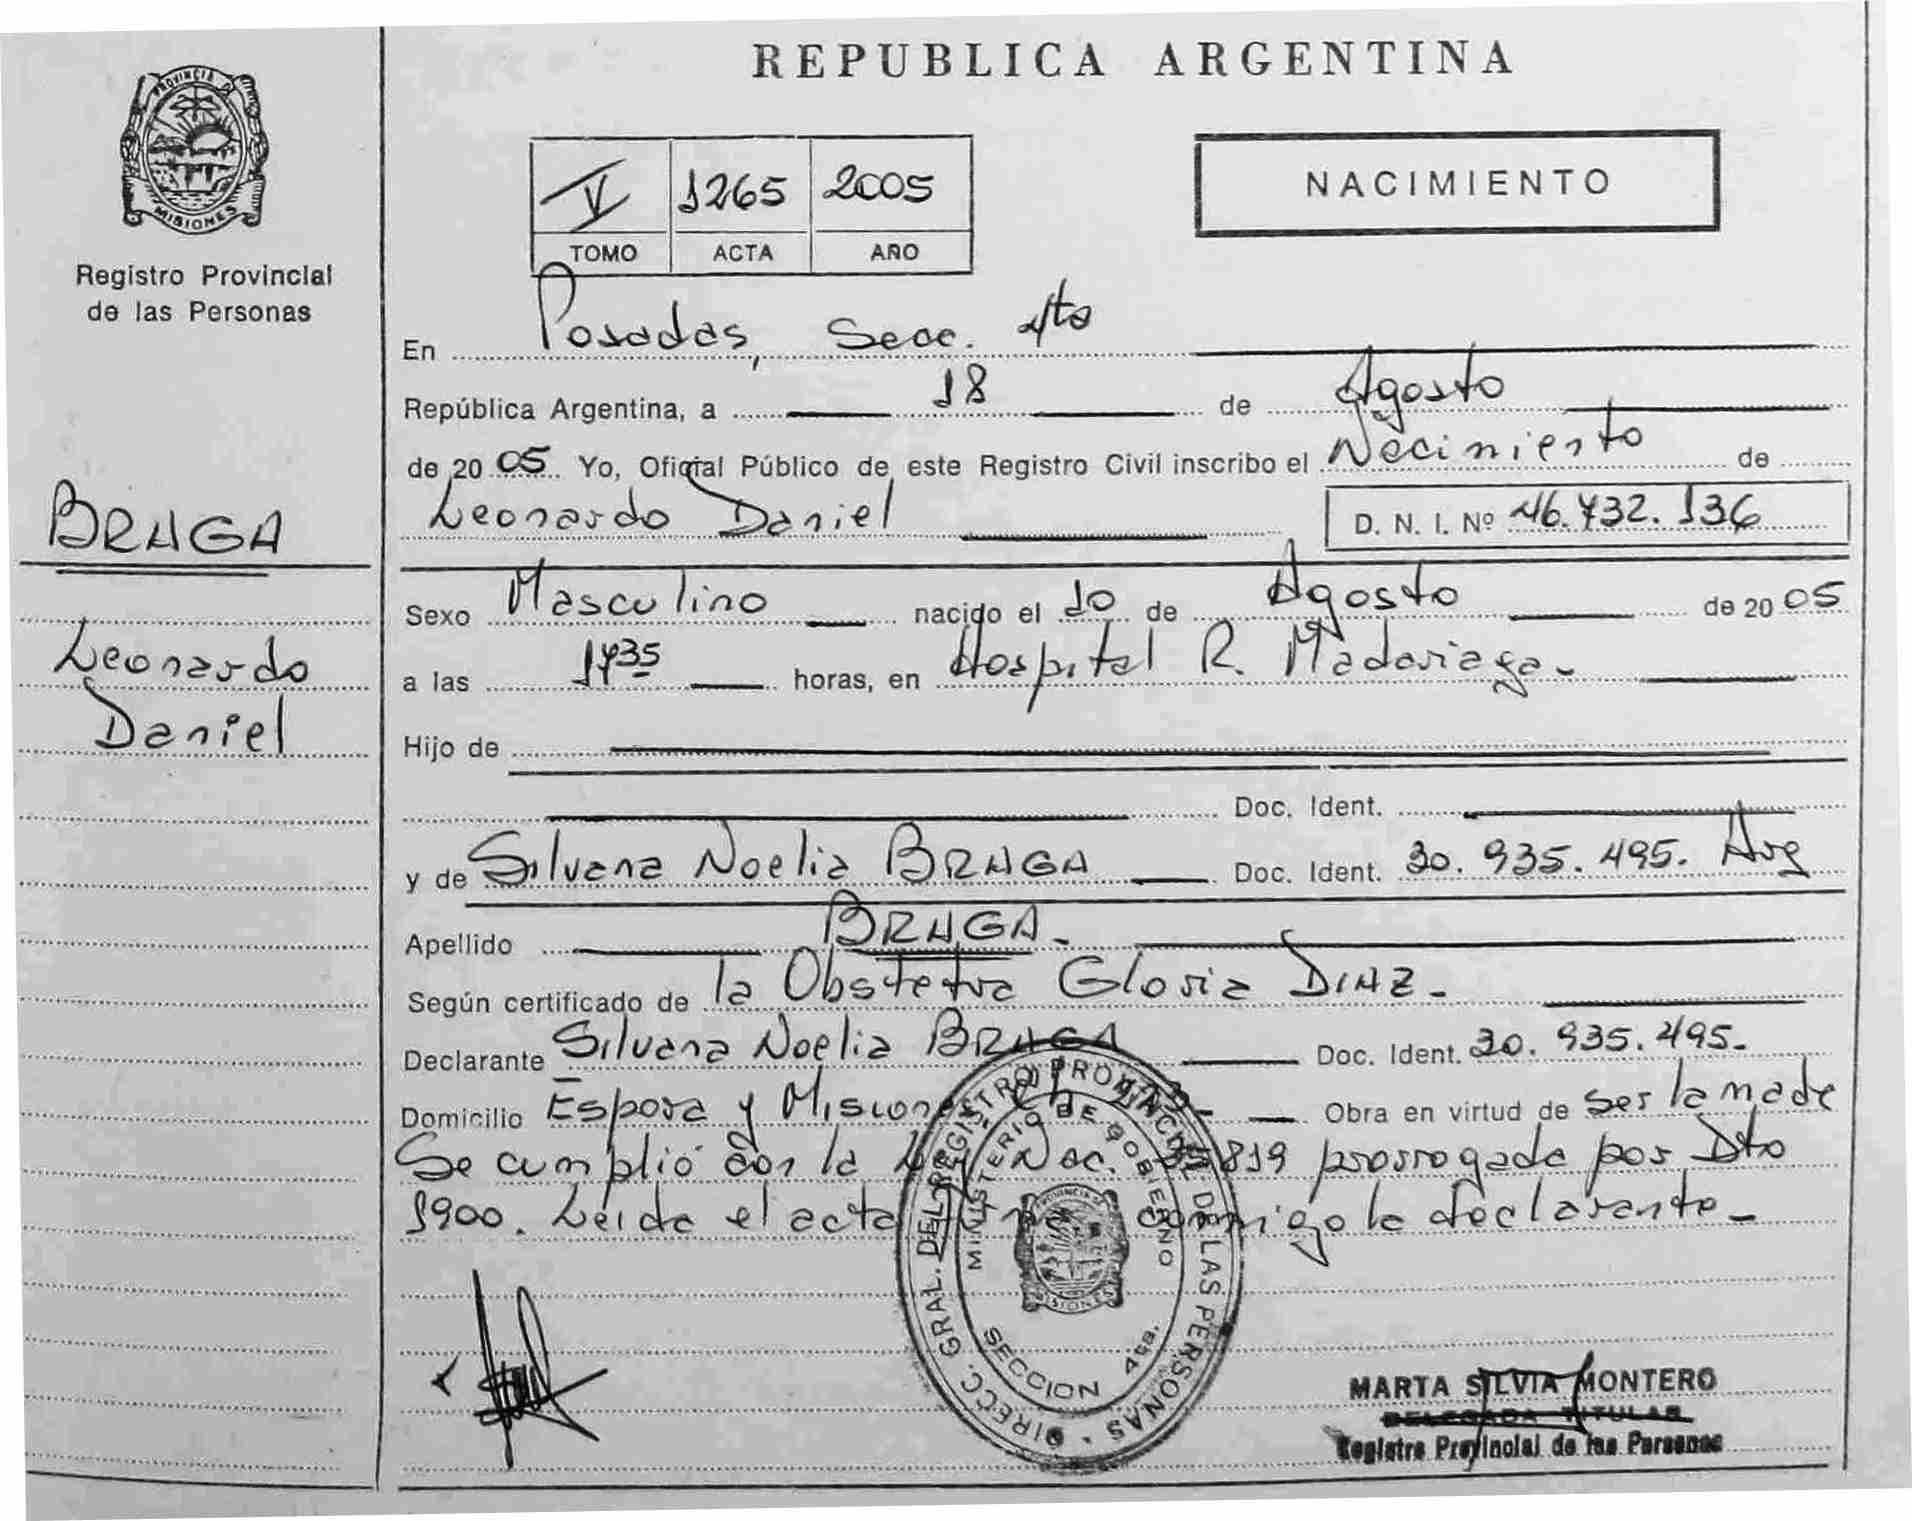 REPUBLICA ARGENTINA
PROVINCIA DE
MISIONES
Registro Provincial
de las Personas
BRAGA
Leonardo
Daniel
V 1265 2005
TOMO ACTA AÑO
NACIMIENTO
En Posadas, Secc. 4ta
República Argentina, a 18 de Agosto
de 20 05 Yo, Oficial Público de este Registro Civil inscribo el Nacimiento de
Leonardo Daniel D. N. I. Nº 46.432.136
Sexo Masculino nacido el 10 de Agosto de 20 05
a las 1435 horas, en Hospital R. Madariaga-
Hijo de
Doc. Ident.
y de Silvana Noelia BRAGA Doc. Ident. 30.935.495. Arg
Apellido BRAGA-
Según certificado de la Obstetra Gloria DIAZ-
Declarante Silvana Noelia BRAGA Doc. Ident. 30.935.495-
Domicilio Espora y Misiones Obra en virtud de ser la madre
Se cumplió con la Ley Nac. 819 prorrogada por Dto
1900. Leida el acta conmigo la declarante-
DIRECC. GRAL. DEL REGISTRO PROVINCIAL DE LAS PERSONAS
MINISTERIO DE GOBIERNO
SECCION 4ta.
MARTA SILVIA MONTERO
DELEGADA TITULAR
Registro Provincial de las Personas